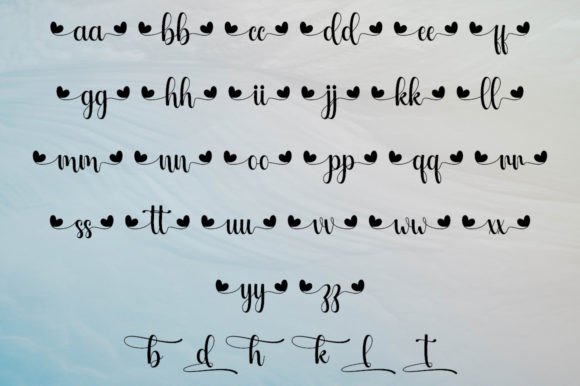 aa bb cc dd ee ff
gg hh ii jj kk ll
mm nn oo pp qq rr
ss tt uu vv ww xx
yy zz
b d h k l t